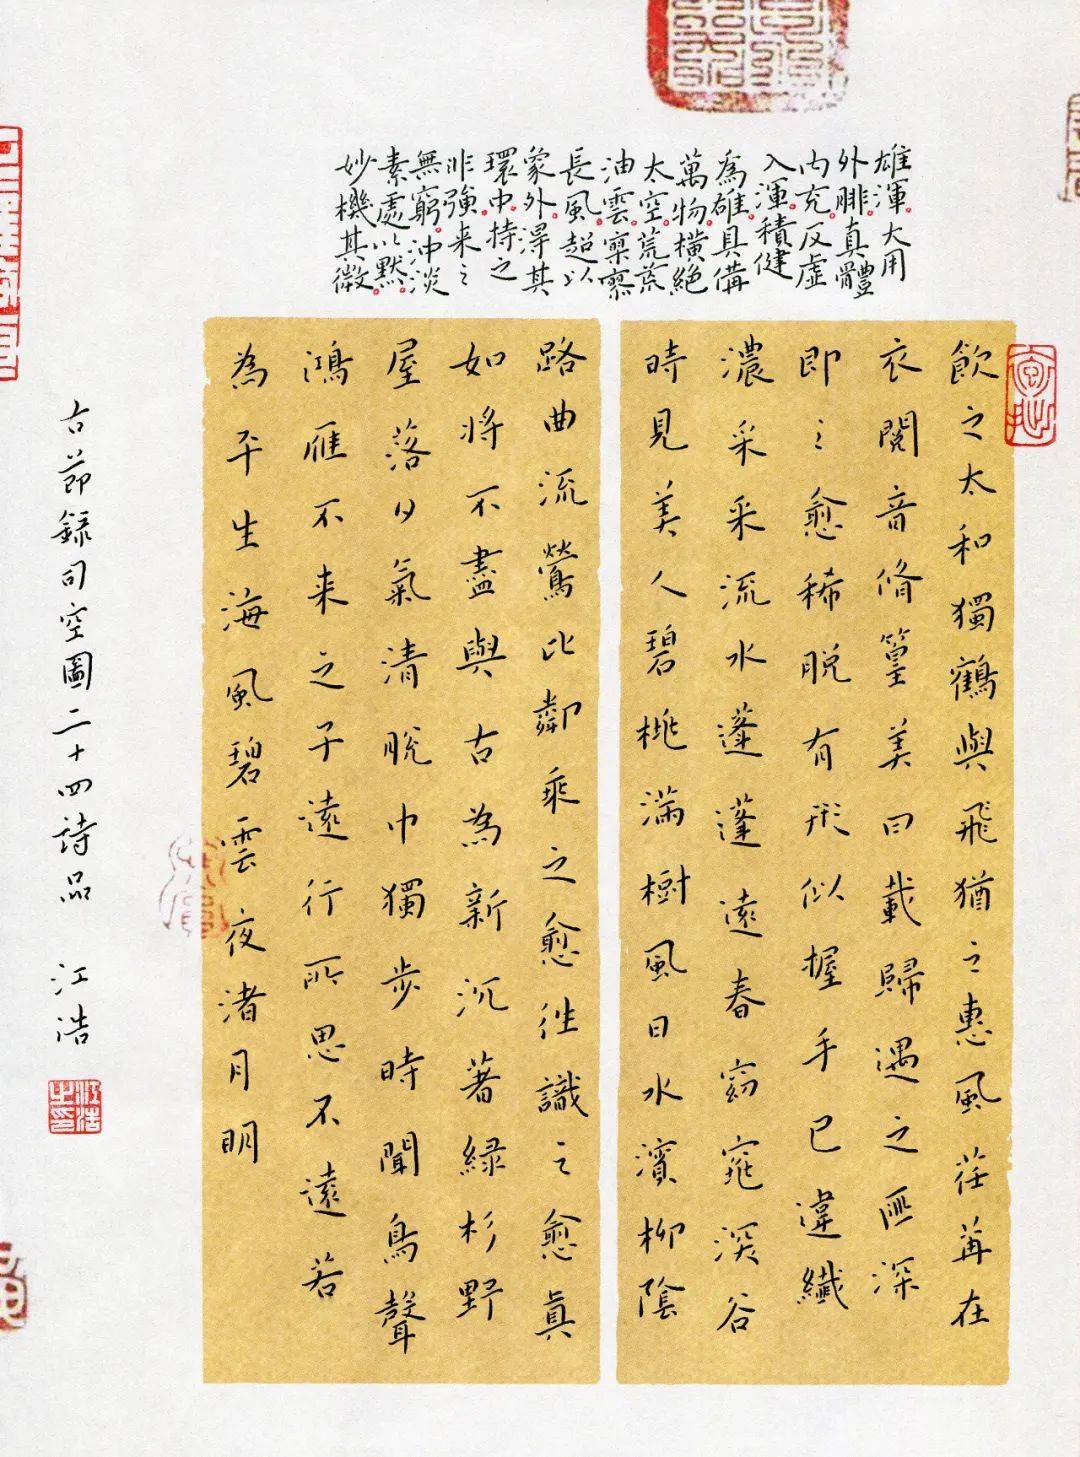 雄渾大用
外腓真體
内充反虛
入渾積健
為雄具備
萬物橫絕
太空荒荒
油雲寥寥
長風超以
象外得其
環中持之
非強来之
無窮沖淡
素處以默
妙機其微
飲之太和獨鶴與飛猶之惠風荏苒在
衣閱音脩篁美曰載歸遇之匪深
即之愈稀脫有形似握手已違纖
濃采采流水蓬蓬遠春窈窕深谷
時見美人碧桃滿樹風日水濱柳陰
路曲流鶯比鄰乘之愈往識之愈真
如將不盡與古為新沉著綠杉野
屋落日氣清脫巾獨步時聞鳥聲
鴻雁不来之子遠行所思不遠若
為平生海風碧雲夜渚月明
古節錄司空圖二十四詩品 江浩
江浩之印